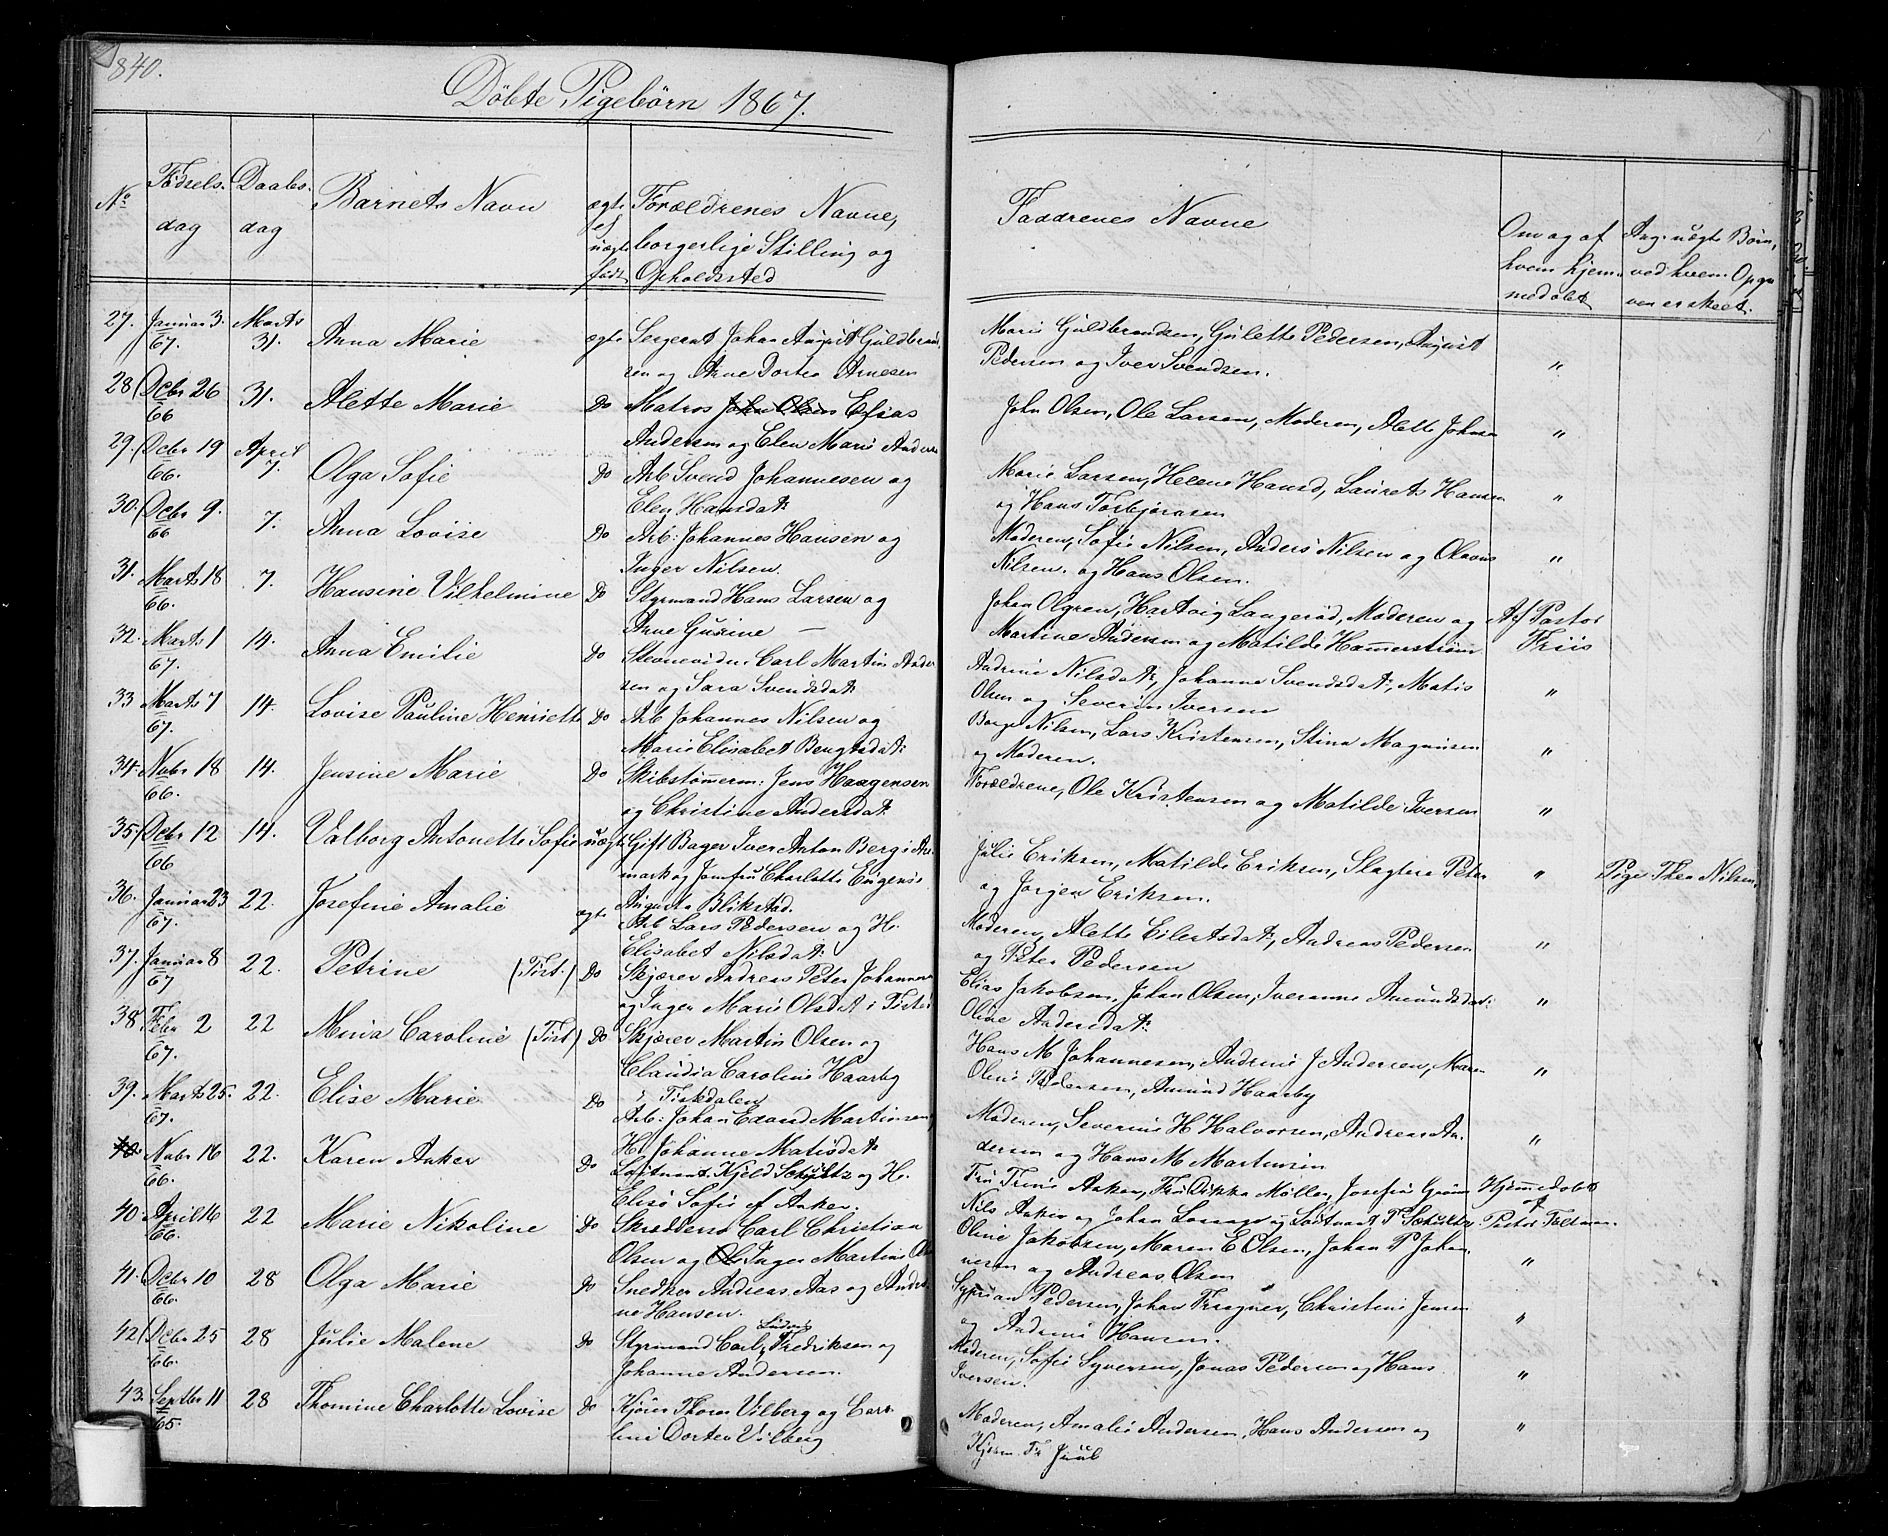 840.
Döbte Pigebörn 1867.
No
Fødsels-
dag
Daabs-
dag
Barnets Navn
ægte
el
uægte
født
Forældrenes Navne,
borgerlige Stilling og
Opholdssted
Faddrenes Navne
Om og af
hvem hjem-
medøbt
Ang. uægte Børn,
ved hvem Opga
ven er skeet.
27. Januar 3. Marts Anna Marie ægte Sergeant Johan August Guldbrand
67. 31. sen og Anne Dortea Arnesen
Marie Guldbrandsen, Gulette Pedersen, August
Pedersen og Iver Svendsen. "
28 Dcbr 26 31. Alette Marie Do Matros John Olsen Elias
66 Andersen og Elen Marie Anders
John Olsen, Ole Larsen, Moderen, Alette Johnsn "
29. Dcbr 19 April Olga Sofie Do Arb Svend Johannesen og
66. 7. Elen Hansdat:
Marie Larsen, Helene Hansd, Laurets Hansen
og Hans Torbjørnsen "
30. Dcbr 9. 7. Anna Lovise Do Arb: Johannes Hansen og
66 Inger Nilsen.
Moderen, Sofie Nilsen, Anders Nilsen og Olavus
Nilsen. og Hans Olsen. "
31. Marts 18 7. Hansine Vilhelmine Do Styrmand Hans Larsen og
66. Anne Gusine —
Johan Olgren, Hartvig Langerød, Moderen og Af Pastor
Martine Andersen og Matilde Hammerstrøm Friis
32. Marts 1 14. Anna Emilie Do Carl Martin Ander
67. sen og Sara Svendsdat:
Andrine Nilsdat:, Johanne Svendsdat:, Matis
Olsen og Severin Iversen "
33 Marts 7 14. Lovise Pauline Henriette Do Arb Johannes Nilsen og
67. Marie Elisabet Bengtsdat:
Borge Nilsen, Lars Kristensen, Stina Magnusen
og Moderen. "
34. Nvbr 18 14. Jensine Marie Do Skibstømmerm: Jens Haagensen
66. og Christine Andersdat:
Forældrene, Ole Kristensen og Matilde Iversen "
35. Dcbr 12 14. Valborg Antonette Sofie uægte Gift Bager Iver Anton Berg i Are
66 mark og Jomfru Charlotte Eugenie
Augusta Blikstad.
Julie Eriksen, Matilde Eriksen, Slagter Peter
og Jørgen Eriksen. " Pige Thea Nilsen
36. Januar 23 22. Josefine Amalie ægte Arb Lars Pedersen og H.
67. Elisabet Nilsdat:
Moderen, Alette Eilertsdat:, Andreas Pedersen
og Peter Pedersen "
37. Januar 8 22. Petrine (Tist.) Do Skjærer Andreas Peter Johannes
67 og Inger Marie Olsdat i Tisted
Elias Jakobsen, Johan Olsen, Iveranne Amundsdat:
Oline Andersdat: "
38 Febr 2 22 Mina Caroline (Tist) Do Skjærer Martin Olsen og
67. Claudia Caroline Haarby
i Tistedalen
Hans M Johannesen, Andrine J Andersen, Maren
Oline Pedersen, Amund Haarby "
39. Marts 25. 22. Elise Marie Do Arb: Johan Edvard Martinsen
67. H. Johanne Matisdat:
Moderen, Severine H Halvorsen, Andreas An-
dersen og Hans M Martinsen "
40. Nvbr 16 22. Karen Anker Do Løitnant Kjeld Schultz og H.
66. Elise Sofie f Anker.
Fru Trine Anker, Fru Dikka Møller, Josefine Grøn Hjemmedøbt
Nils Anker og Johan og Løitnant P Schultz af Pastor Feltman.
40. April 16 22 Marie Nikoline Do Skrædder Carl Christian
66. Olsen og Inger Martine Ols
Oline Jakobsen, Maren E Olsen, Johan P Johan
nesen og Andreas Olsen "
41. Dcbr 10 28 Olga Marie Do Snedker Andreas Aas og Andri
66. ne Hansen.
Syprian Pedersen, Johan Fragner, Christine Jensen
og Andrine Hansen. "
42 Dcbr 25 28 Julie Malene Do Styrmand Carl Ludvig Fredriksen og
66. Johanne Andersen.
Moderen, Sofie Syversen, Jonas Pedersen og Hans
Iversen. "
43. Septbr 11 28 Thomine Charlotte Lovise Do Thom Vilberg og Caro
65. line Dortea Vilberg
Moderen, Amalie Andersen, Hans Andersen og
Kjøbm. Fr Juul "